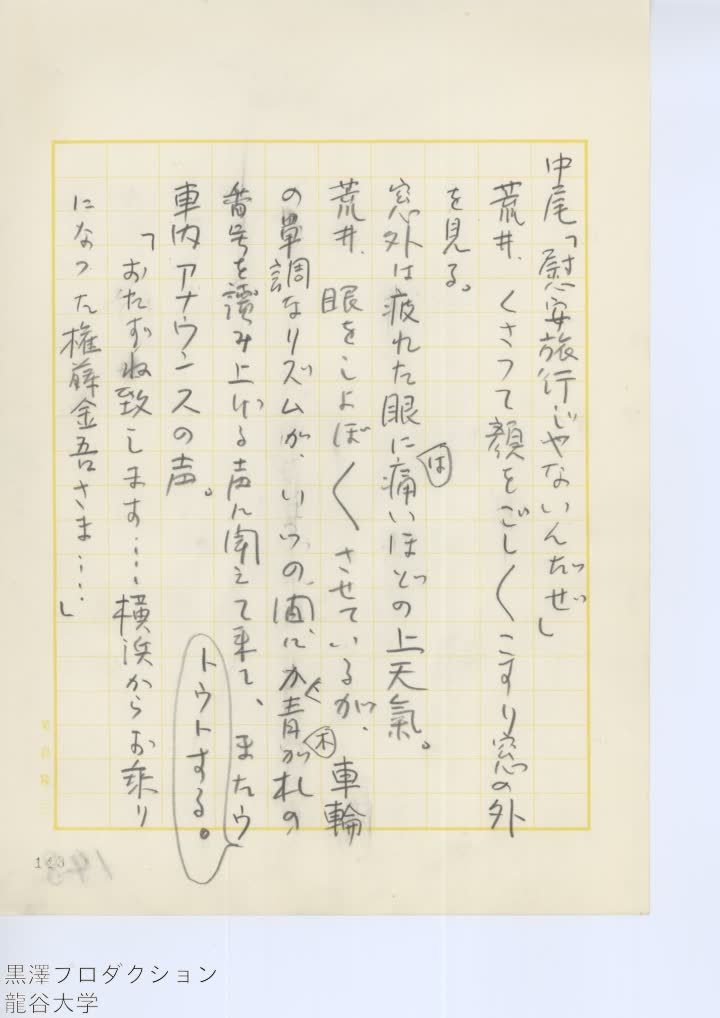 中尾「慰安旅行じゃないんだぜ」
荒井、くさって顔をごし〱こすり窓の外
を見る。
窓外は疲れた眼には痛いほどの上天氣。
荒井、眼をしょぼ〱させているが、車輪
の単調なリズムが、いつの間にか青木が札の
番号を讀み上げる声に聞えて来て、またウ
トウトする。
車内アナウンスの声。
「おたずね致します…横浜からお乗り
になった権藤金吾さま…」
143
黒澤プロダクション
龍谷大学